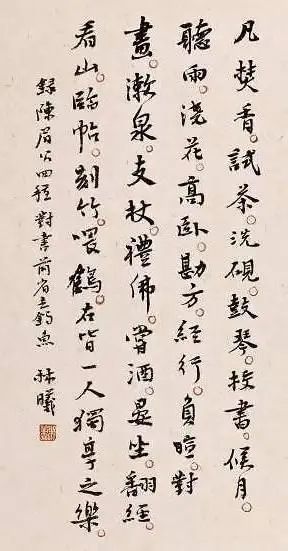 凡焚香。試茶。洗硯。鼓琴。校書。候月。
聽雨。澆花。高臥。勘方。經行。負暄。對
畫。漱泉。支杖。禮佛。嘗酒。晏坐。翻經
看山。臨帖。刻竹。喂鶴。右皆一人獨享之樂
錄陳眉公 對 前省去釣魚 林曦